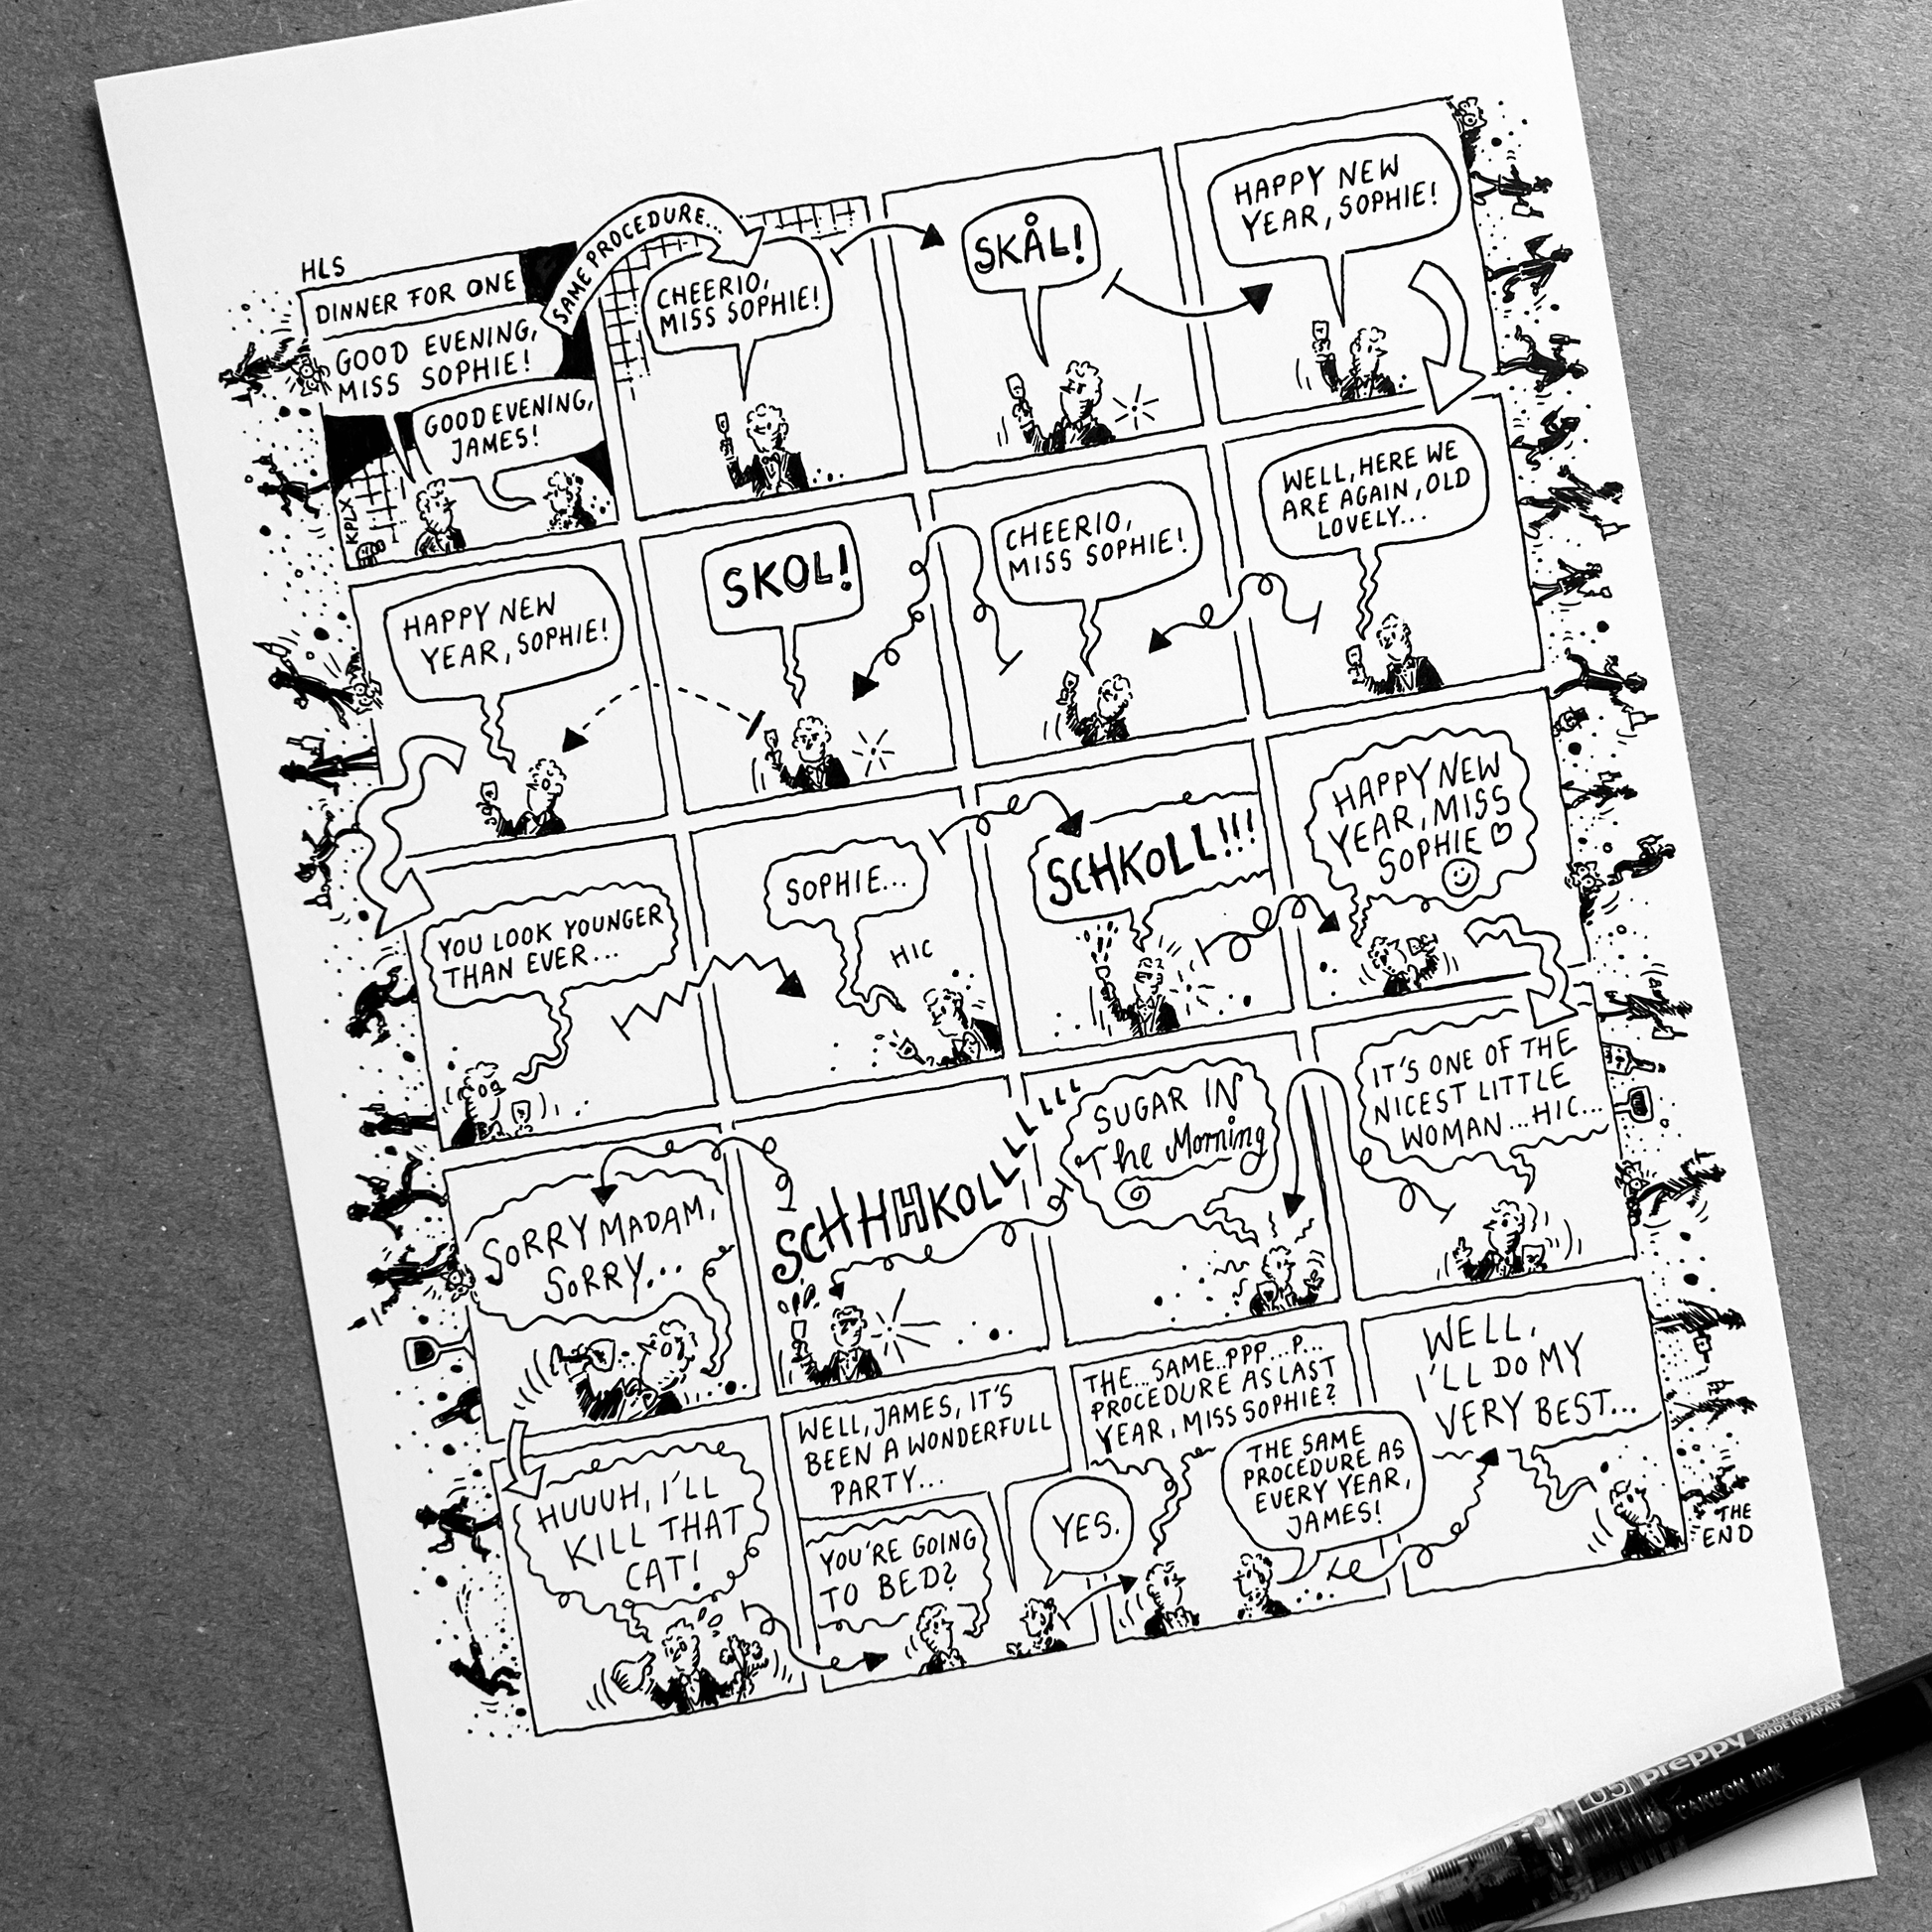 HLS
DINNER FOR ONE
GOOD EVENING,
MISS SOPHIE!
GOOD EVENING,
JAMES!
KPLX
SAME PROCEDURE...
CHEERIO,
MISS SOPHIE!
SKÅL!
HAPPY NEW
YEAR, SOPHIE!
WELL, HERE WE
ARE AGAIN, OLD
LOVELY...
CHEERIO,
MISS SOPHIE!
SKOL!
HAPPY NEW
YEAR, SOPHIE!
YOU LOOK YOUNGER
THAN EVER...
SOPHIE...
HIC
SCHKOLL!!!
HAPPY NEW
YEAR, MISS
SOPHIE
IT'S ONE OF THE
NICEST LITTLE
WOMAN...HIC...
SUGAR IN
The Morning
SCHHHKOLLLLLLLLL
SORRY MADAM,
SORRY...
HUUUH, I'LL
KILL THAT
CAT!
WELL, JAMES, IT'S
BEEN A WONDERFULL
PARTY...
YOU'RE GOING
TO BED?
YES.
THE...SAME..PPP...P...
PROCEDURE AS LAST
YEAR, MISS SOPHIE?
THE SAME
PROCEDURE AS
EVERY YEAR,
JAMES!
WELL,
I'LL DO MY
VERY BEST...
THE
END
05 preppy
MADE IN JAPAN
CARBON INK